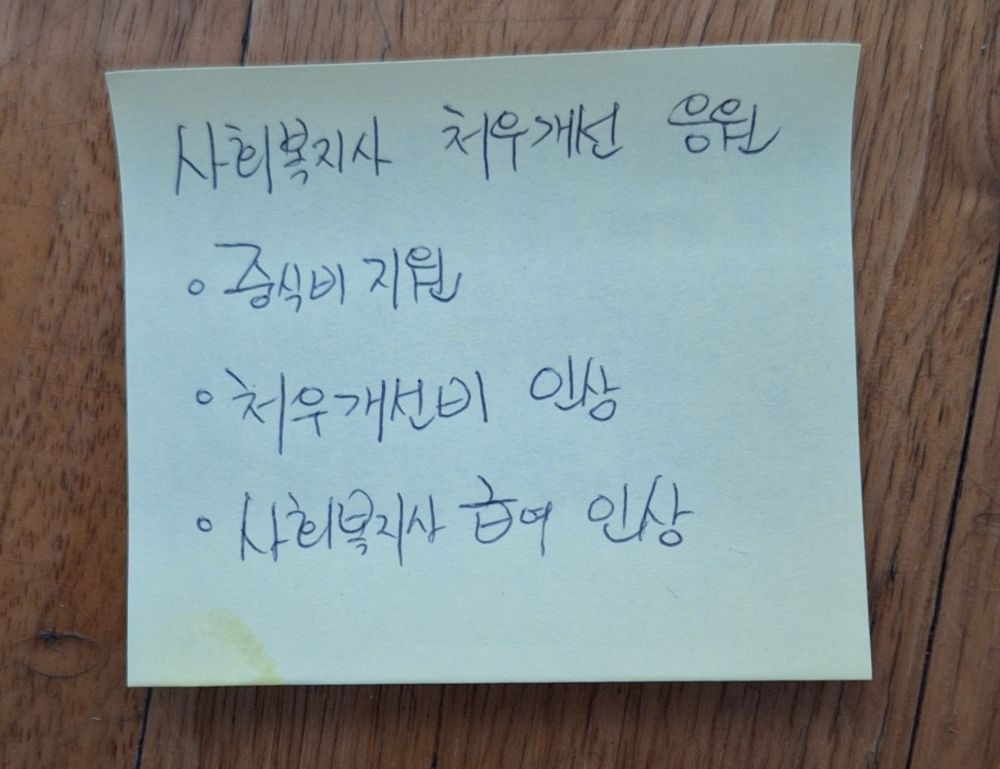 사회복지사 처우개선 응원
◦ 중식비 지원
◦ 처우개선비 인상
◦ 사회복지사 급여 인상